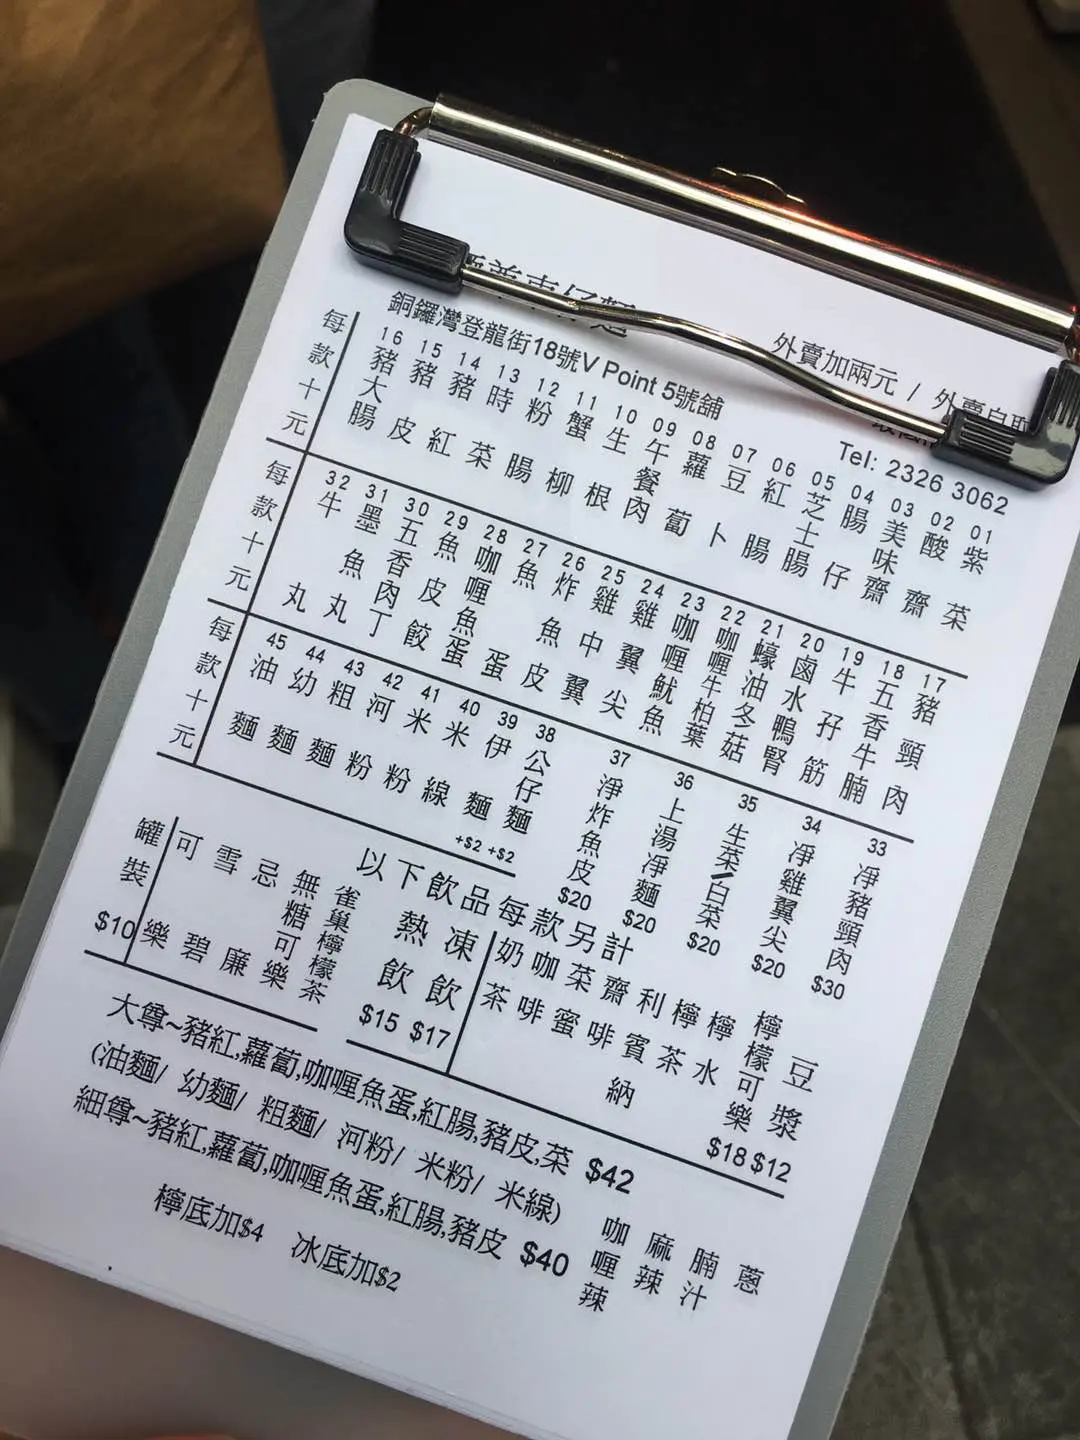 車仔麵
銅鑼灣登龍街18號V Point 5號舖
外賣加兩元 / 外賣自取
Tel: 2326 3062
每款十元
01 紫菜
02 酸齋
03 美味齋
04 腸仔
05 芝士腸
06 紅腸
07 豆卜
08 蘿蔔
09 午餐肉
10 生根
11 蟹柳
12 粉腸
13 時菜
14 豬紅
15 豬皮
16 豬大腸
每款十元
17 豬頸肉
18 五香牛腩
19 牛孖筋
20 鹵水鴨腎
21 蠔油冬菇
22 咖喱牛柏葉
23 咖喱魷魚
24 雞翼尖
25 雞中翼
26 炸魚皮
27 魚蛋
28 咖喱魚蛋
29 魚皮餃
30 五香肉丁
31 墨魚丸
32 牛丸
每款十元
33 凈豬頸肉 $30
34 凈雞翼尖 $20
35 生菜/白菜 $20
36 上湯凈麵 $20
37 淨炸魚皮 $20
38 公仔麵 +$2
39 伊麵 +$2
40 米線
41 米粉
42 河粉
43 粗麵
44 幼麵
45 油麵
以下飲品每款另計
罐裝 $10
可樂
雪碧
忌廉
無糖可樂
雀巢檸檬茶
熱飲 $15
凍飲 $17
奶茶
咖啡
菜蜜
齋啡
利賓納
檸茶
檸水
檸檬可樂 $18
豆漿 $12
大尊~豬紅,蘿蔔,咖喱魚蛋,紅腸,豬皮,菜 $42
(油麵/ 幼麵/ 粗麵/ 河粉/ 米粉/ 米線)
細尊~豬紅,蘿蔔,咖喱魚蛋,紅腸,豬皮 $40
檸底加$4 冰底加$2
咖喱辣
麻辣
腩汁
蔥